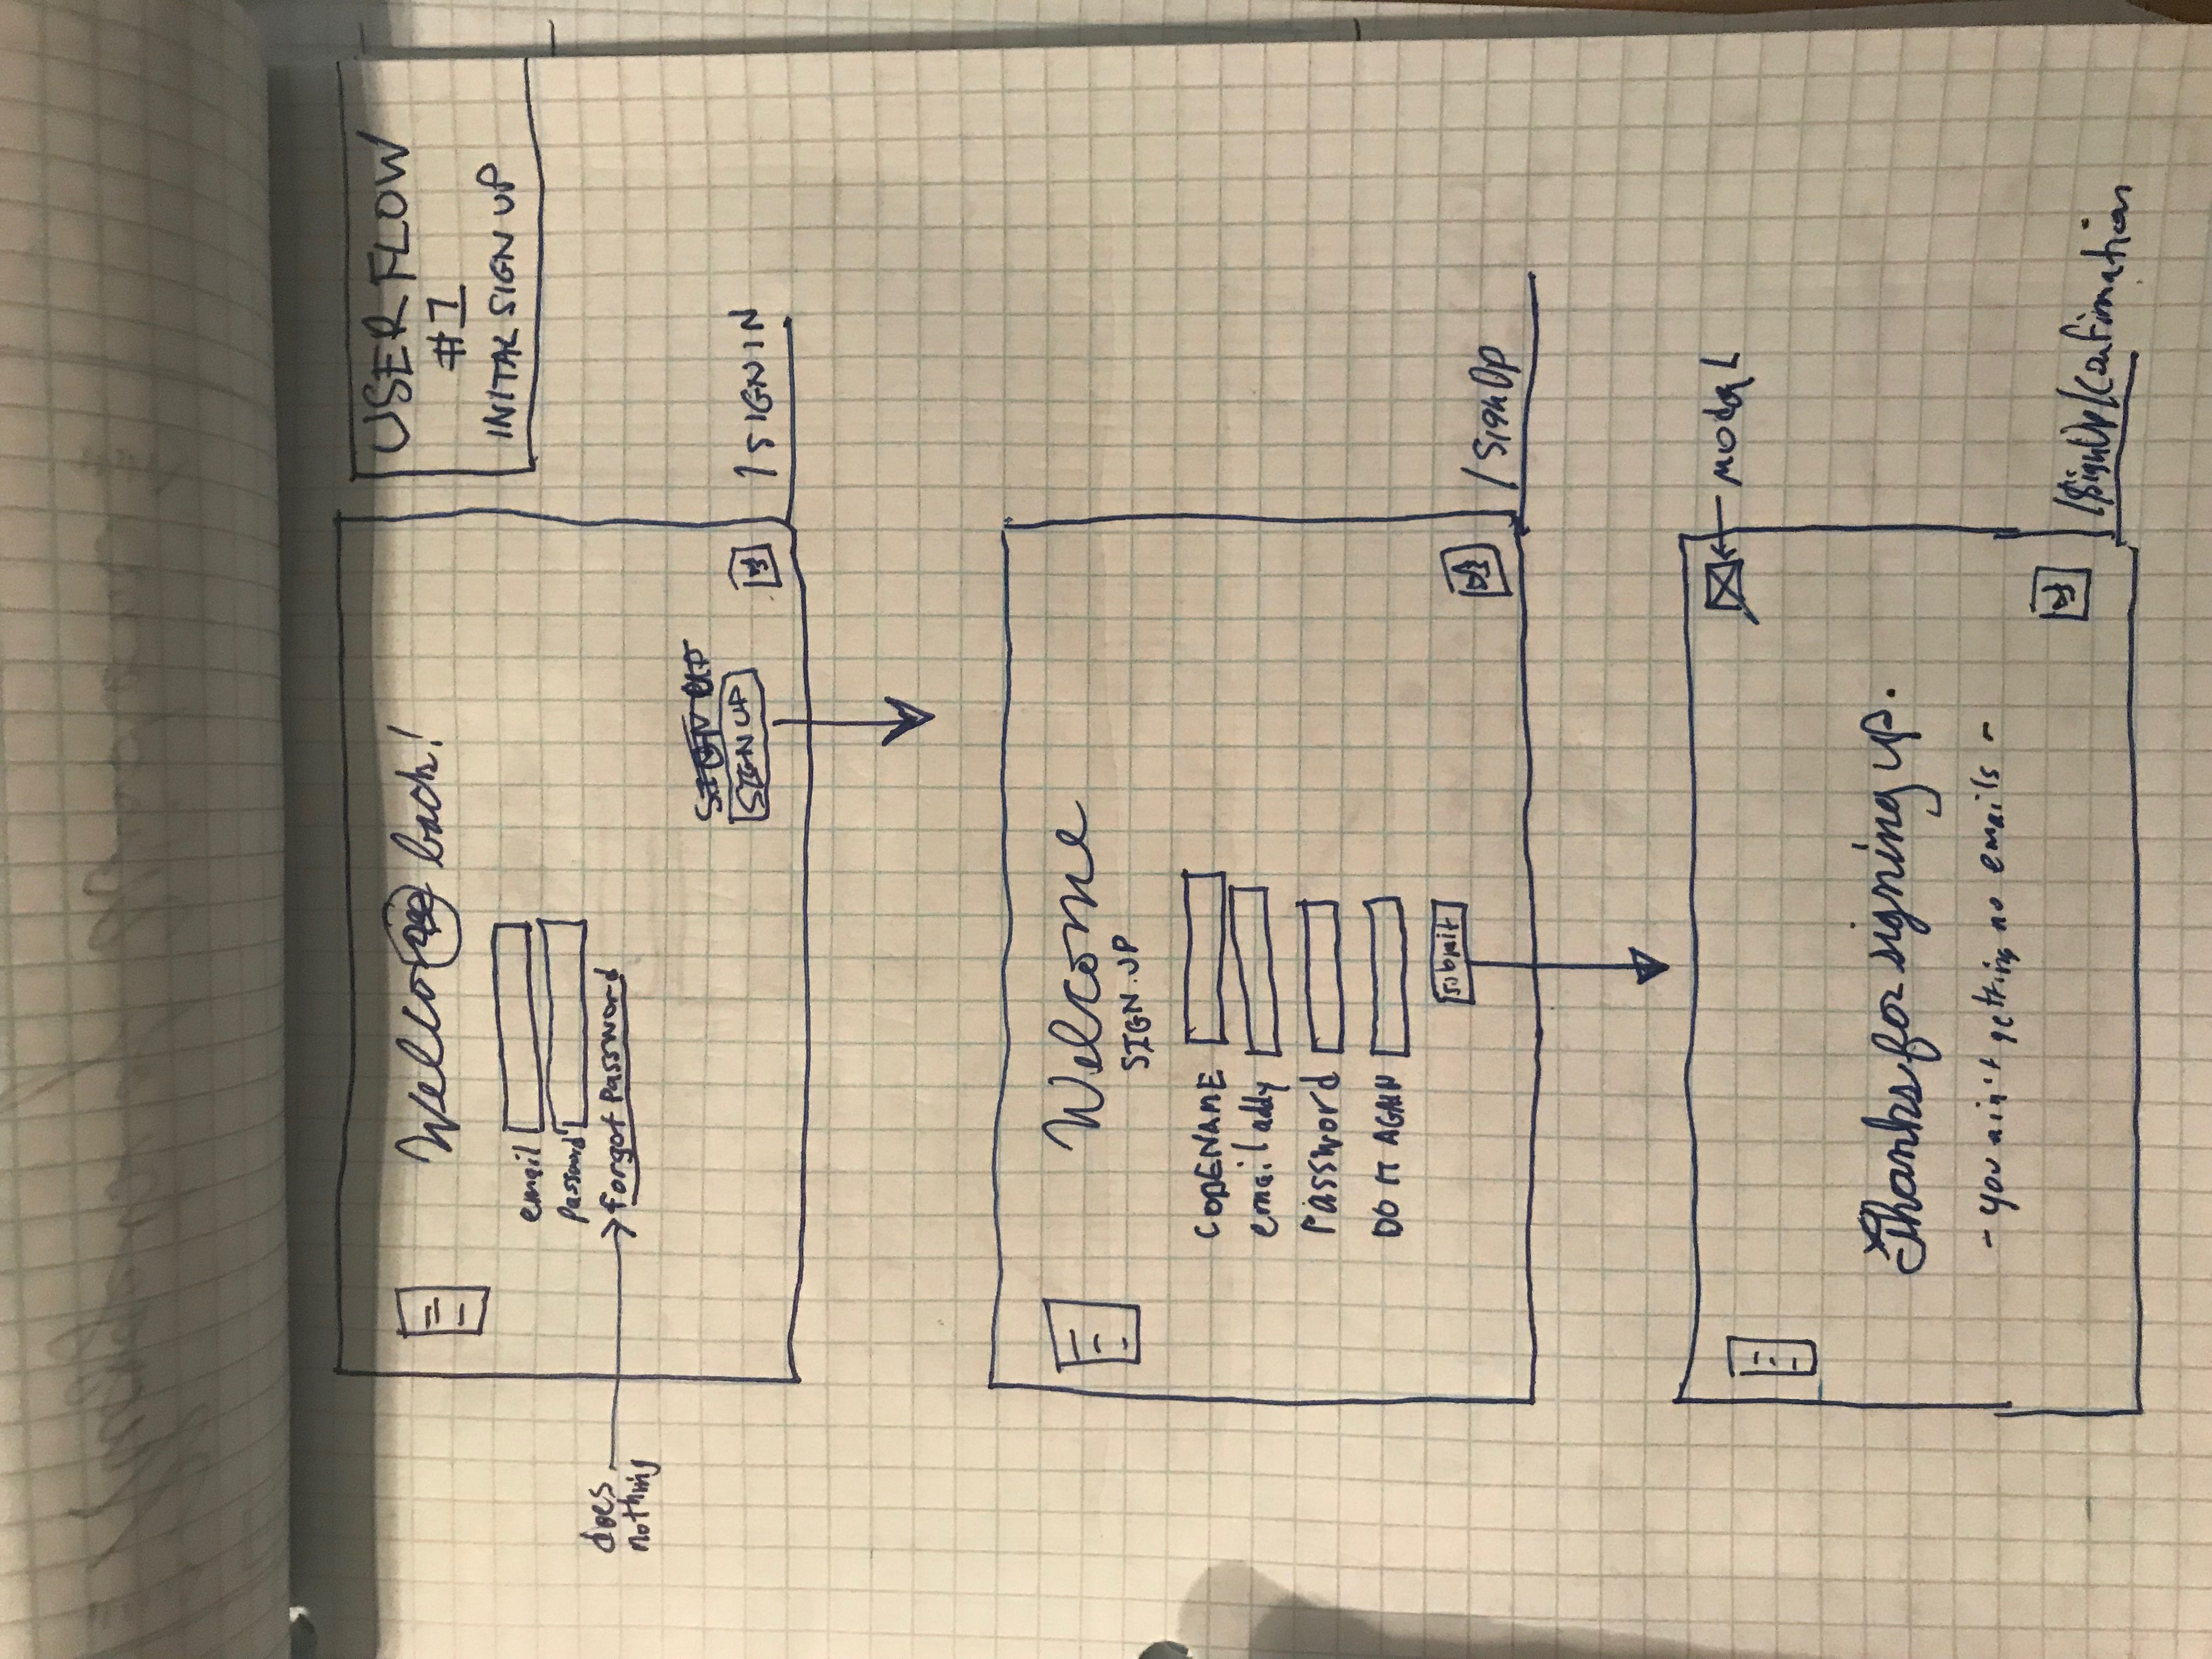 USER FLOW
#1
INITAL SIGN UP
Welcome back!
email
password
does
nothing
forgot password
SIGN UP
SIGN UP
/SIGN IN
Welcome
SIGN UP
CODENAME
email addy
Password
DO IT AGAIN
submit
/SignUp
modal
Thanks for signing up.
- you ain't getting no emails -
/SignUp/Confirmation